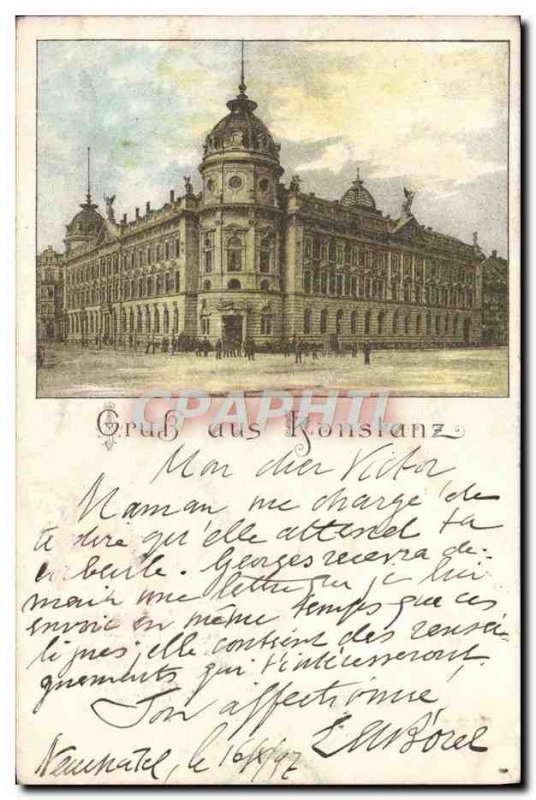 Gruß aus Konstanz
CPAPHIL
Mon cher Victor
Maman me charge de
te dire qu'elle attend ta
. Georges recevra de-
main une lettre que je lui
envoie en même temps que ces
lignes; elle contient des rensei-
gnements qui t'intéresseront.
Ton affectionné
Borel
Neuchatel, le 16/X/97